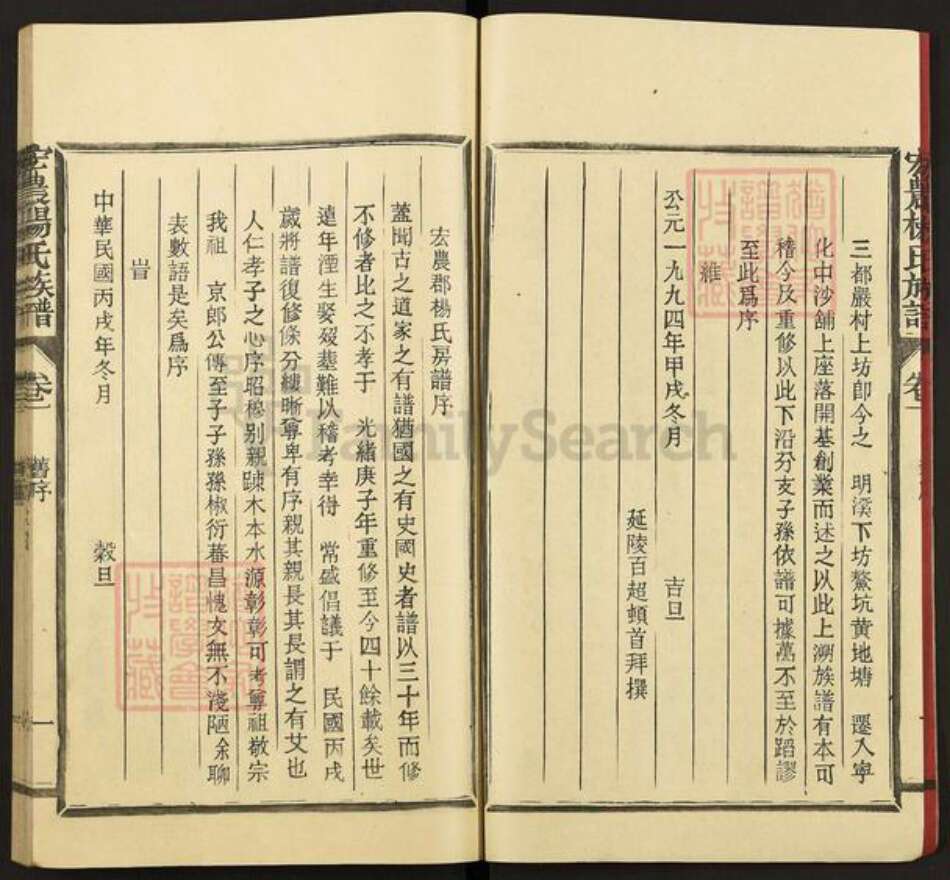 宏農楊氏族譜 卷一
三都嚴村上坊卽今之 明溪下坊鰲坑黄地塘 遷入寧
化中沙舖上座落開基創業而述之以此上溯族譜有本可
稽今及重修以此下沿分支子孫依譜可據萬不至於蹈謬
至此爲序
維
公元一九九四年甲戌冬月 吉旦
延陵百超頓首拜撰
宏農郡楊氏房譜序
蓋聞古之道家之有譜猶國之有史國史者譜以三十年而修
不修者比之不孝于 光緒庚子年重修至今四十餘載矣世
遠年湮生娶歿塟難以稽考幸得 常盛倡議于 民國丙戌
歲將譜復修條分縷晰尊卑有序親其親長其長謂之有艾也
人仁孝子之心序昭穆别親踈木本水源彰彰可考尊祖敬宗
我祖 京郎公傳至子子孫孫椒衍蕃昌愧文無不淺陋余聊
表數語是矣爲序
旹
中華民國丙戌年冬月 穀旦
宏農楊氏族譜 卷一 舊序 一
FamilySearch